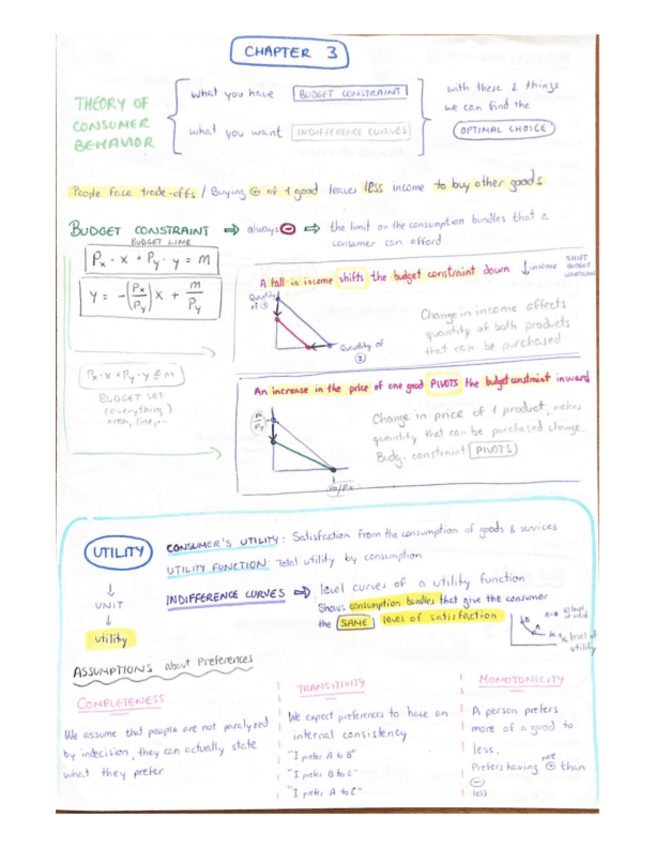 CHAPTER 3
THEORY OF
CONSUMER
BEHAVIOR
what you have BUDGET CONSTRAINT
what you want INDIFFERENCE CURVES
with these 2 things
we can find the
OPTIMAL CHOICE
People face trade-offs / Buying + of 1 good leaves less income to buy other goods
BUDGET CONSTRAINT ⇨ always - ⇨ the limit on the consumption bundles that a
consumer can afford
BUDGET LINE
Px · x + Py · y = m
y = -(Px/Py) x + m/Py
Px·x + Py·y ≤ m
BUDGET SET
(everything)
area, line,...
A fall in income shifts the budget constraint down ↓income
SHIFT
BUDGET
Quantity
of ①
Quantity of
②
Change in income affects
quantity of both products
that can be purchased
An increase in the price of one good PIVOTS the budget constraint inward
m/Py
m/Px
Change in price of 1 product, makes
quantity that can be purchased change.
Budg. constraint PIVOTS
UTILITY
↓
UNIT
↓
utility
CONSUMER'S UTILITY: Satisfaction from the consumption of goods & services
UTILITY FUNCTION: Total utility by consumption
INDIFFERENCE CURVES ⇨ level curves of a utility function
Shows consumption bundles that give the consumer
the SAME level of satisfaction
level of
utility
ASSUMPTIONS about Preferences
COMPLETENESS
We assume that people are not paralyzed
by indecision, they can actually state
what they prefer
TRANSITIVITY
We expect preferences to have an
internal consistency
"I prefer A to B"
"I prefer B to C"
"I prefer A to C"
MONOTONICITY
A person prefers
more of a good to
less.
Prefers having + than
more
-
less